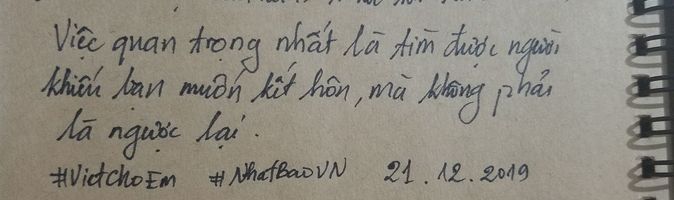 Việc quan trọng nhất là tìm được người
khiến bạn muốn kết hôn, mà không phải
là ngược lại.
#VietchoEm #NhatBaoVN 21.12.2019